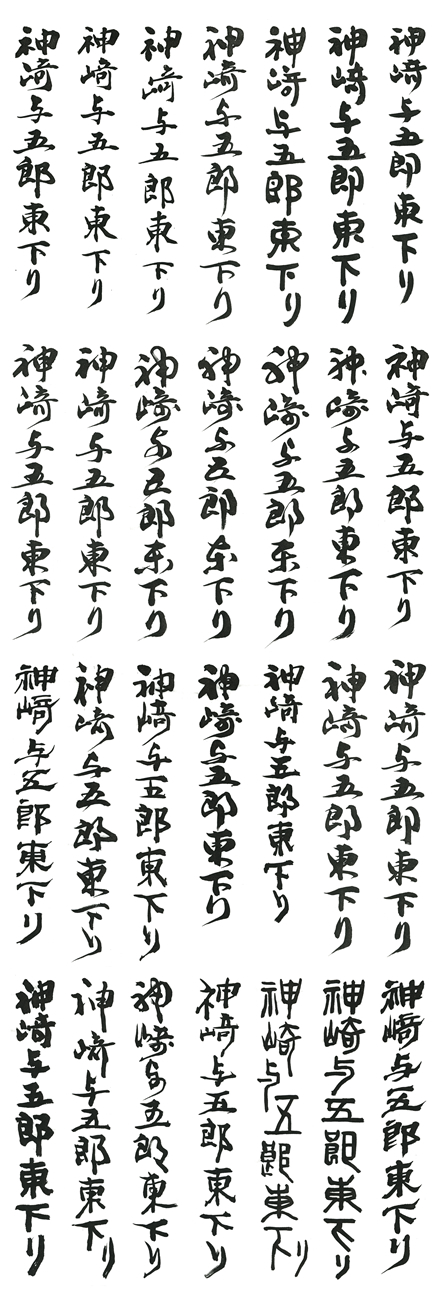 神﨑与五郎東下り
神﨑与五郎東下り
神﨑与五郎東下り
神﨑与五郎東下り
神﨑与五郎東下り
神﨑与五郎東下り
神﨑与五郎東下り
神﨑与五郎東下り
神崎与五郎東下り
神崎与五郎東下り
神崎与五郎東下り
神崎与五郎東下り
神﨑与五郎東下り
神﨑与五郎東下り
神﨑与五郎東下り
神﨑与五郎東下り
神﨑与五郎東下り
神崎与五郎東下り
神﨑与五郎東下り
神﨑与五郎東下り
神﨑与五郎東下り
神﨑与五郎東下り
神崎与五郎東下り
神崎与五郎東下り
神﨑与五郎東下り
神崎与五郎東下り
神﨑与五郎東下り
神﨑与五郎東下り